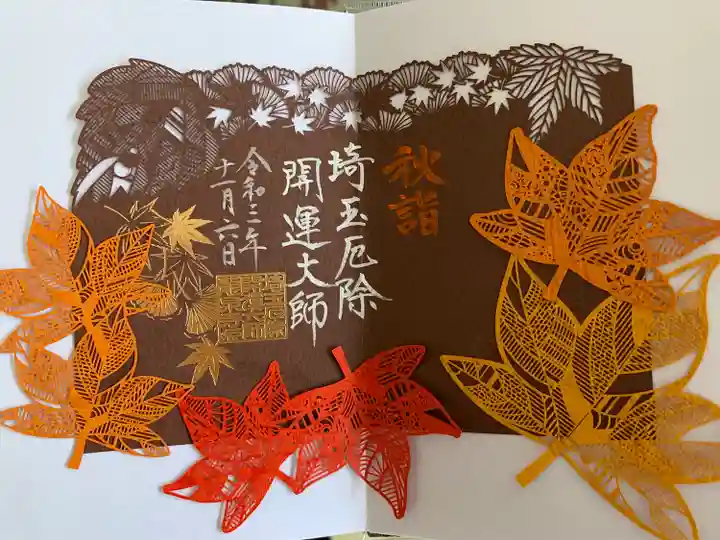 秋詣
埼玉厄除
開運大師
令和三年
十一月六日